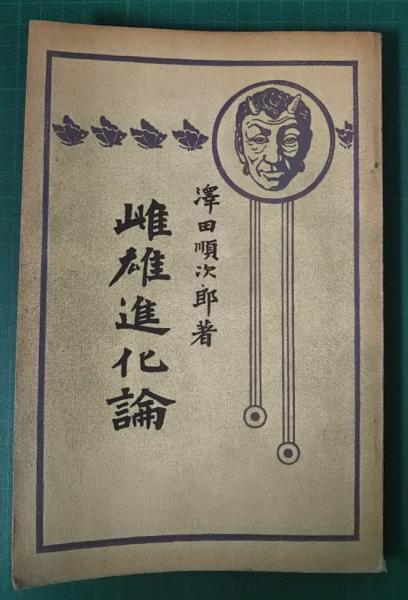 澤田順次郎著
雌雄進化論